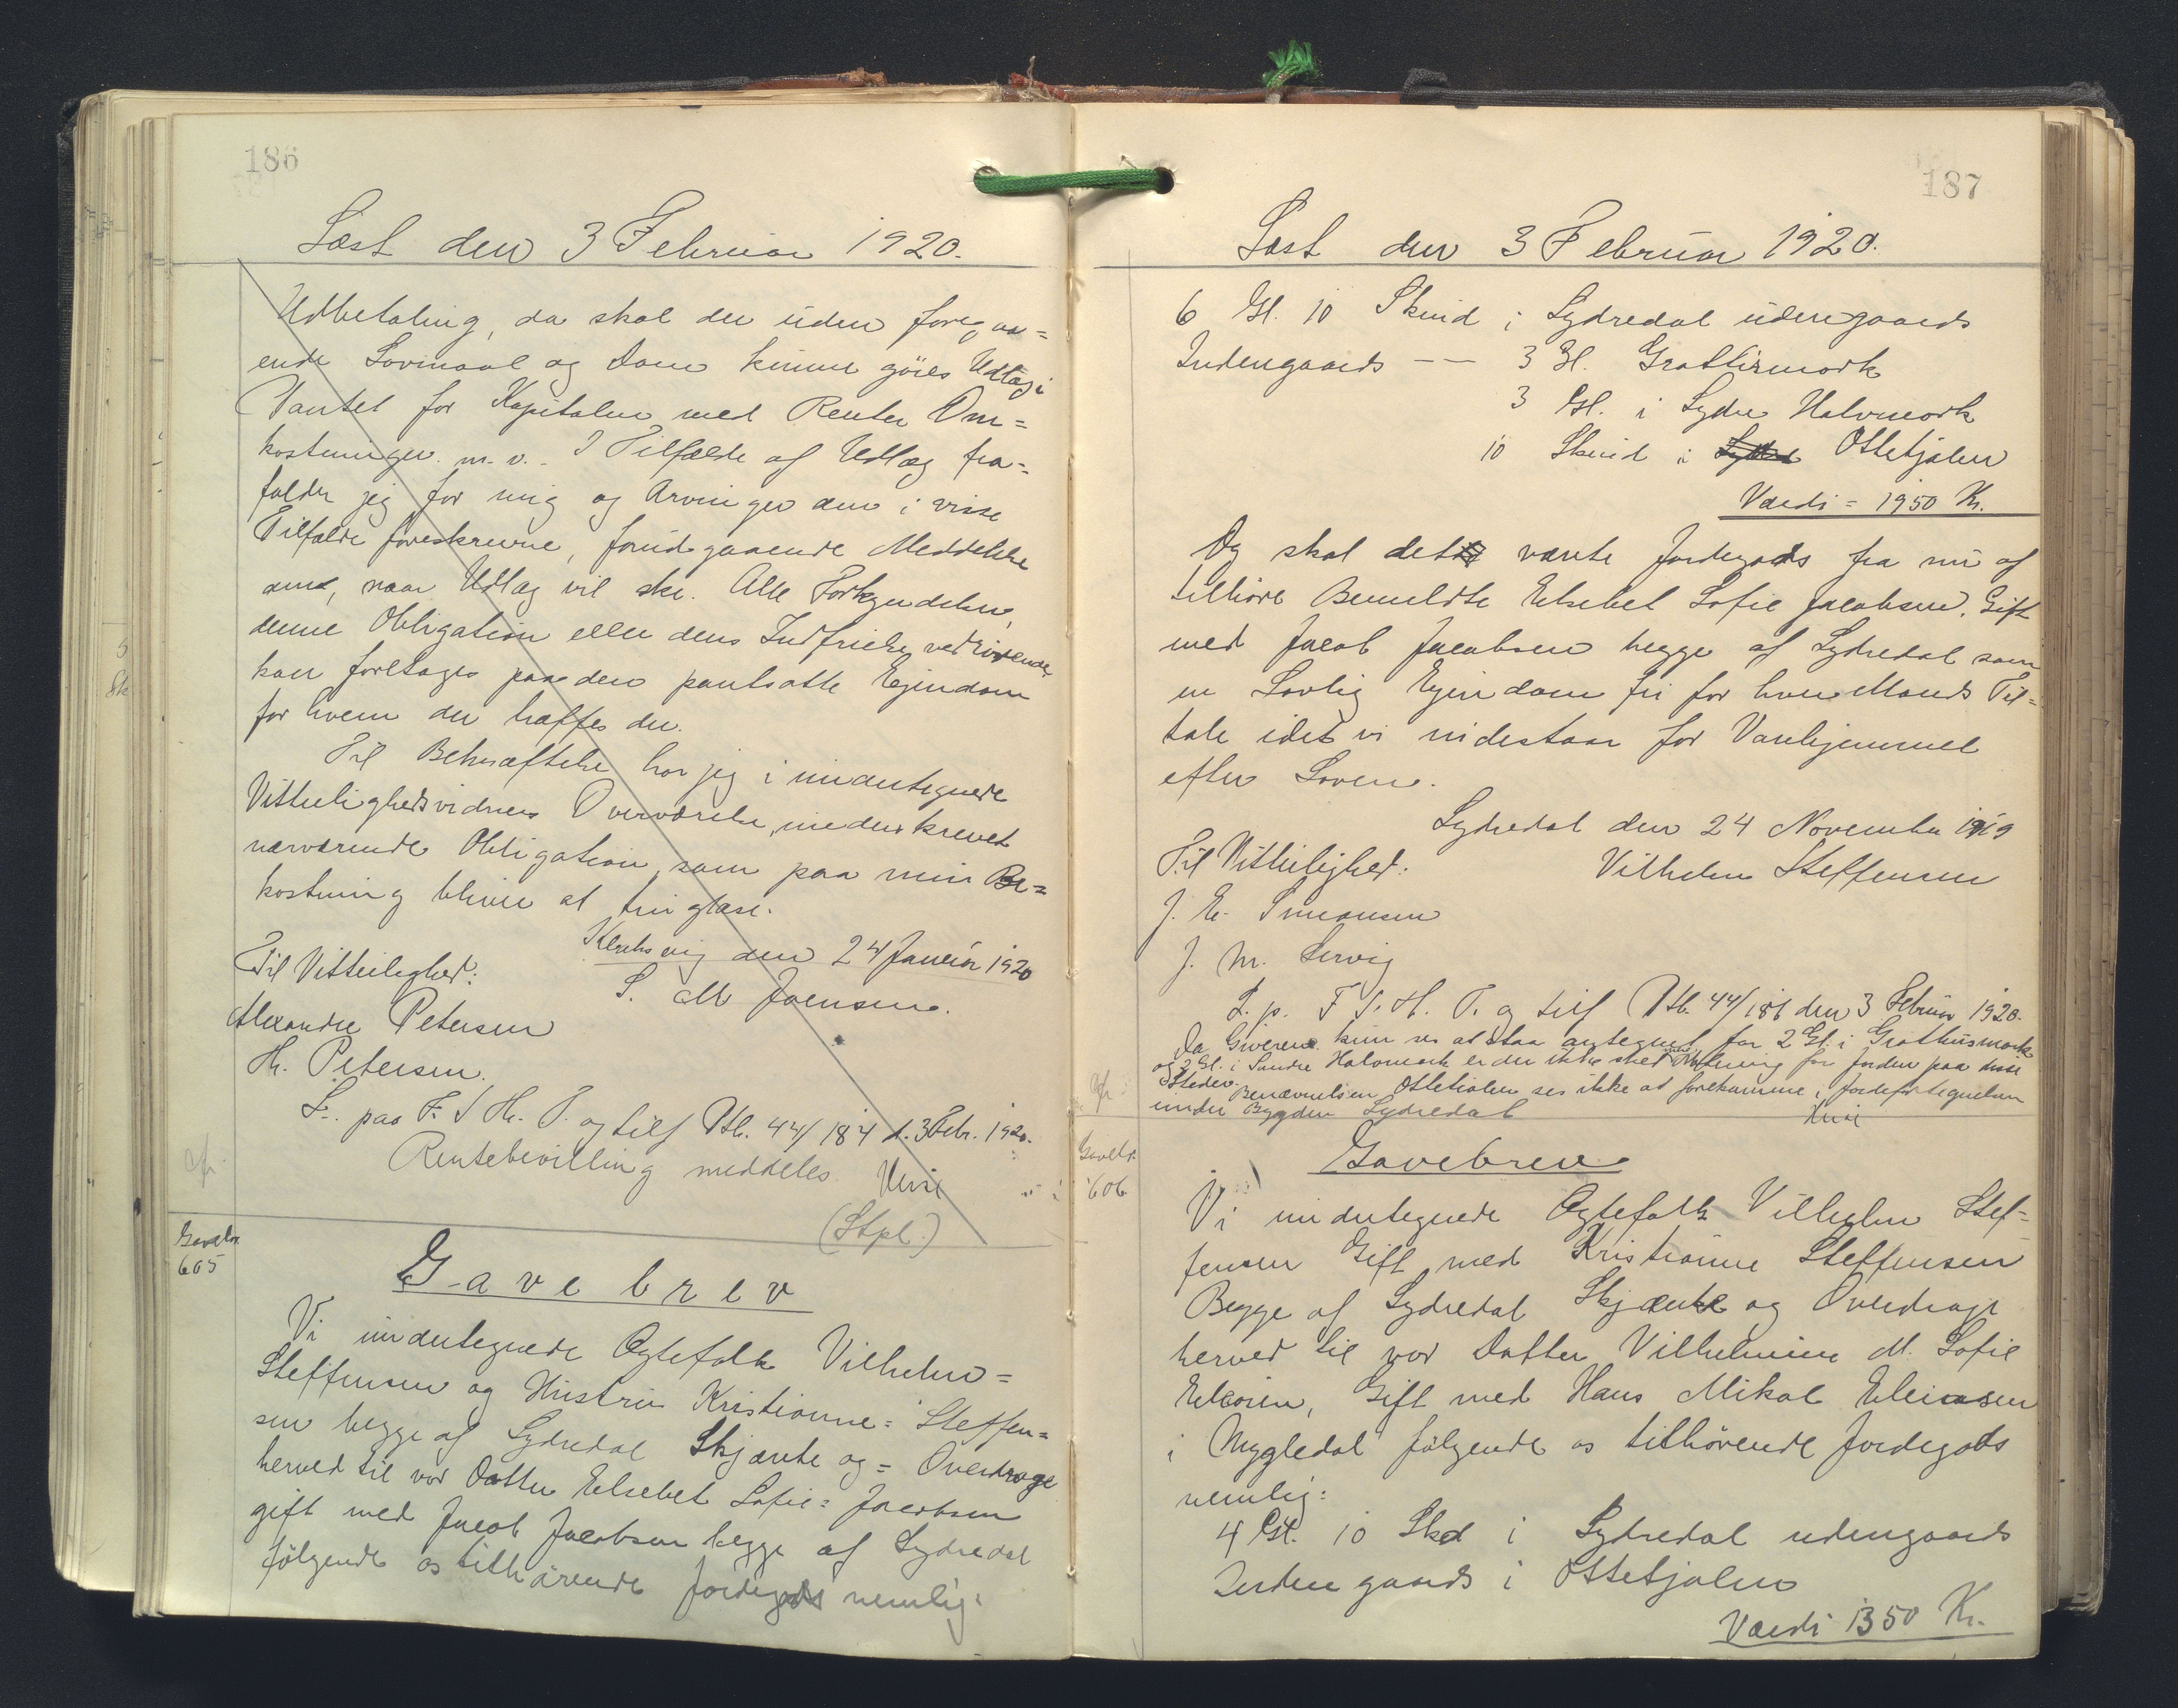 186
Læst den 3 Februar 1920.
Udbetaling, da skal der uden foregaa=
ende Lovmaal og Dom kunne göres Udlæg i
Pantet for Kapitalen med Renter Om=
kostninger m. v. I Tilfælde af Udlæg fra=
falder jeg for mig og Arvinger den i visse
Tilfælde foreskrevne, forudgaaende Meddelelse
om, naar Udlæg vil ske. Alle Forkyndelser,
denne Obligation eller dens Indfrielse vedrörende,
kan foretages paa den pantsatte Ejendom
for hvem der træffes der.
Til Bekræftelse har jeg i undertegnede
Vitterlighedsvidners Overværelse, underskrevet
nærværende Obligation, som paa min Be=
kostning bliver at tinglæse.
Klaksvig den 24 Januar 1920
Til Vitterlighed:
S. M Joensen.
Alexander Petersen
H. Petersen.
L. paa F. S Th. P. og tilf Ptb. 44/184 d. 3 Febr. 1920.
Rentebevilling meddeles
(Stpl.)
Gavebr
605
Gavebrev
Vi undertegnede Ægtefolk Vilhelm=
Steffensen og Hustru Kristianne= Steffen=
sen begge af Sydredal Skjænke og= Overdrage
herved til vor Datter Elsebet Sofie= Jacobsen
gift med Jacob Jacobsen begge af Sydredal
fölgende os tilhörende Jordegods nemlig:
187
Læst den 3 Februar 1920.
6 Gl. 10 Skind i Sydredal udengaards
Indengaards — — 3 Gl. Grothusmork
3 Gl. i Sydre Halvmork
10 Skind i Ottetjalen
Værdi = 1950 Kr.
Og skal dette nævnte Jordegods fra nu af
tilhöre Bemeldte Elsebet Sofie Jacobsen, Gift
med Jacob Jacobsen begge af Sydredal som
en Lovlig Ejendom fri for hver Mands Til=
tale idet vi indestaar for Vanhjemmel
efter Loven.
Sydredal den 24 November 1919
Til Vitterlighed:
Vilhelm Steffensen
J. E. Simonsen
J. M. Lervig
L. p. F S. Th. P. og tilf Ptb. 44/186 den 3 Februar 1920.
Da Giveren kun ses at staa antegnet for 2 Gl. i Grothusmork
og 2 Gl. i Sundre Halvmork er der ikke sket Notering for Jorden paa disse
Steder. Benævnelsen Ottetialen ses ikke at forekomme i Jordefortegnelsen
under Bygden Sydredal
Gavebr.
606
Gavebrev
Vi undertegnede Ægtefolk Vilhelm Stef=
fensen Gift med Kristianne Steffensen
Begge af Sydredal Skjænke og Overdrage
herved til vor Datter Vilhelmine M. Sofie
Eliasen, Gift med Hans Mikal Eliasen
i Mygledal fölgende os tilhörende Jordegods
nemlig:
4 Gl. 10 Skd i Sydredal udengaards
Indengaards i Ottetjalen
Værdi 1350 Kr.